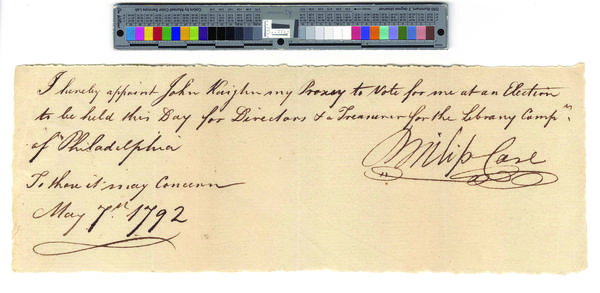 I hereby appoint John Kaighn my Proxey to Vote for me at an Election
to be held this Day for Directors & a Treasurer for the Library Compn.
of Philadelphia
Philip Case
To those it may Concern
May 7th. 1792